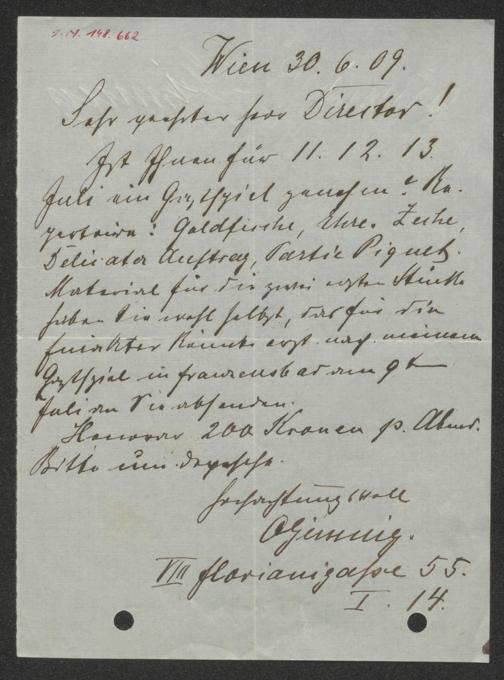 I. N. 148.662
Wien 30. 6. 09.
Sehr geehrter Herr Director!
Ist Ihnen für 11. 12. 13.
Juli ein Gastspiel genehm? Re-
pertoire: Goldfische, Ihre Zeche,
Delicater Auftrag, Partie Piquet.
Material für die zwei ersten Stücke
haben Sie wohl selbst, das für die
Einakter könnte erst nach meinem
Gastspiel in Franzensbad am 9t
Juli an Sie absenden.
Honorar 200 Kronen p. Abend.
Bitte um Depesche.
Hochachtungsvoll
VIII Florianigasse 55.
I. 14.